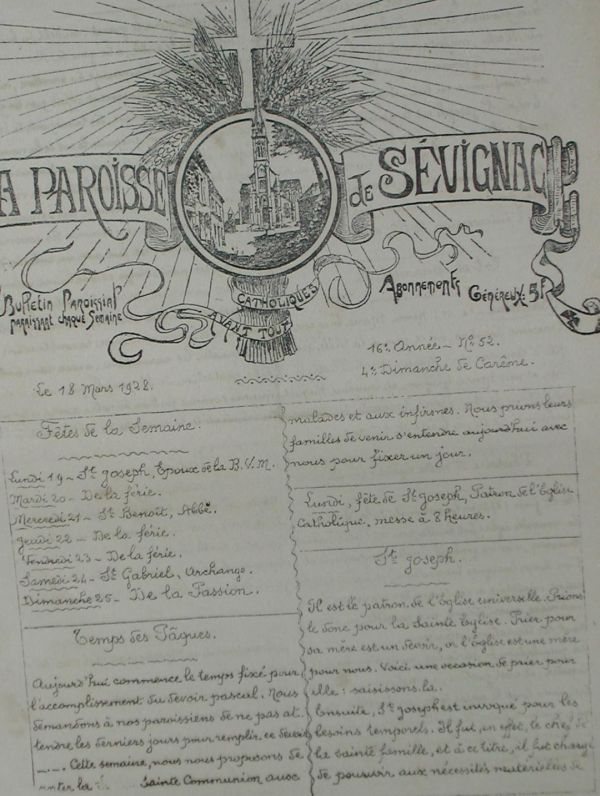 A PAROISSE de SÉVIGNAC
Bulletin Paroissial
paraissant chaque Semaine
CATHOLIQUES
AVANT TOUT
Abonnements Généreux: 5f
16e Année - No 52.
4e Dimanche de Carême.
Le 18 Mars 1928.
Fêtes de la Semaine.
Lundi 19 - St Joseph, Epoux de la B.V.M.
Mardi 20 - De la férie.
Mercredi 21 - St Benoît, Abbé.
Jeudi 22 - De la férie.
Vendredi 23 - De la férie.
Samedi 24 - St Gabriel, Archange.
Dimanche 25 - De la Passion.
Temps des Pâques.
Aujourd'hui commence le temps fixé pour
l'accomplissement du devoir pascal. Nous
demandons à nos paroissiens de ne pas at-
tendre les derniers jours pour remplir ce devoir
Cette semaine, nous nous proposons de
ter la Sainte Communion aux
malades et aux infirmes. Nous prions leurs
familles de venir s'entendre aujourd'hui avec
nous pour fixer un jour.
Lundi, fête de St Joseph, Patron de l'Eglise
Catholique, messe à 8 heures.
St Joseph.
Il est le patron de l'Eglise universelle. Prions
le donc pour la Sainte Eglise. Prier pour
sa mère est un devoir, or l'Eglise est une mère
pour nous. Voici une occasion de prier pour
elle: saisissons-la.
Ensuite, St Joseph est invoqué pour les
besoins temporels. Il fut, en effet, le chef de
la sainte famille, et à ce titre, il fut chargé
de pourvoir aux nécessités matérielles de